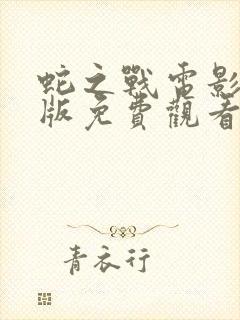 蛇之戰電影
版免費觀看
青衣行